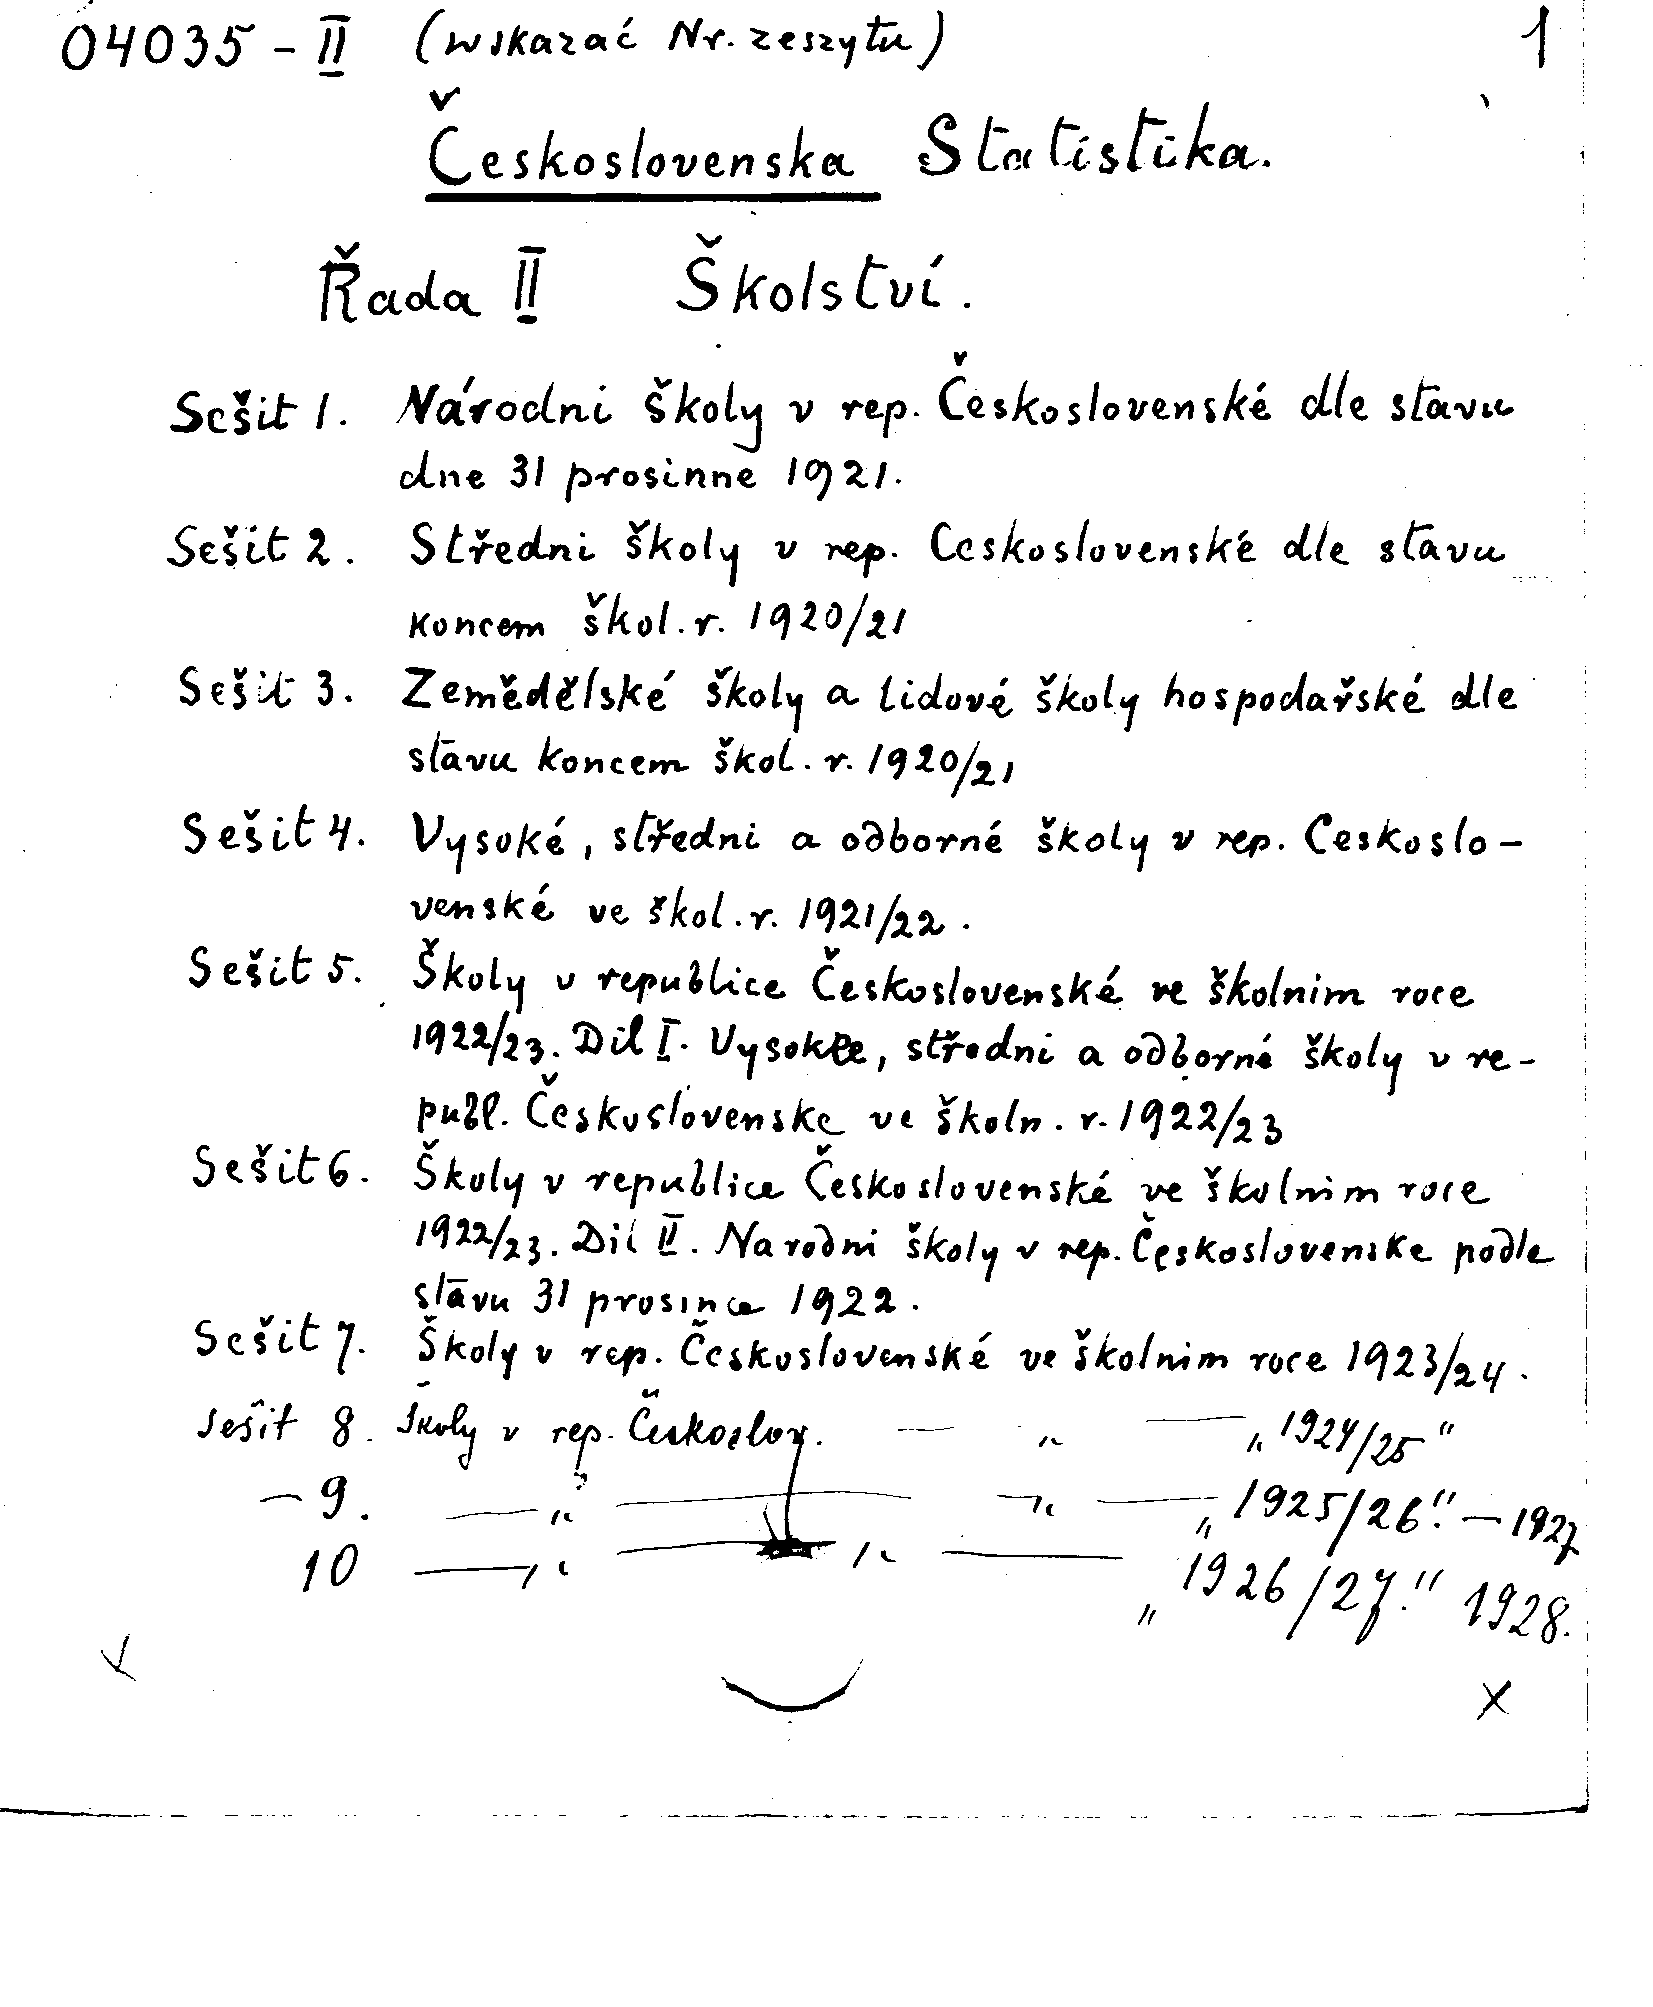 04035 - II (wskazać Nr. zeszytu) 1
Československa Statistika.
Řada II Školství.
Sešit 1. Národni školy v rep. Československé dle stavu
dne 31 prosinne 1921.
Sešit 2. Středni školy v rep. Ceskoslovenské dle stavu
koncem škol. r. 1920/21
Sešit 3. Zemědělské školy a lidové školy hospodařské dle
stavu koncem škol. r. 1920/21
Sešit 4. Vysoké, středni a odborné školy v rep. Ceskoslo-
venské ve škol. r. 1921/22.
Sešit 5. Školy v republice Československé ve školnim roce
1922/23. Dil I. Vysoké, středni a odborné školy v re-
publ. Československe ve školn. r. 1922/23
Sešit 6. Školy v republice Československé ve školnim roce
1922/23. Dil II. Narodni školy v rep. Československe podle
stavu 31 prosince 1922.
Sešit 7. Školy v rep. Československé ve školnim roce 1923/24.
Sešit 8. Školy v rep. Českoslov. — „ — „1924/25"
— 9. — „ — „ — „1925/26." — 1927
10 — „ — „ — „1926/27." 1928.
x